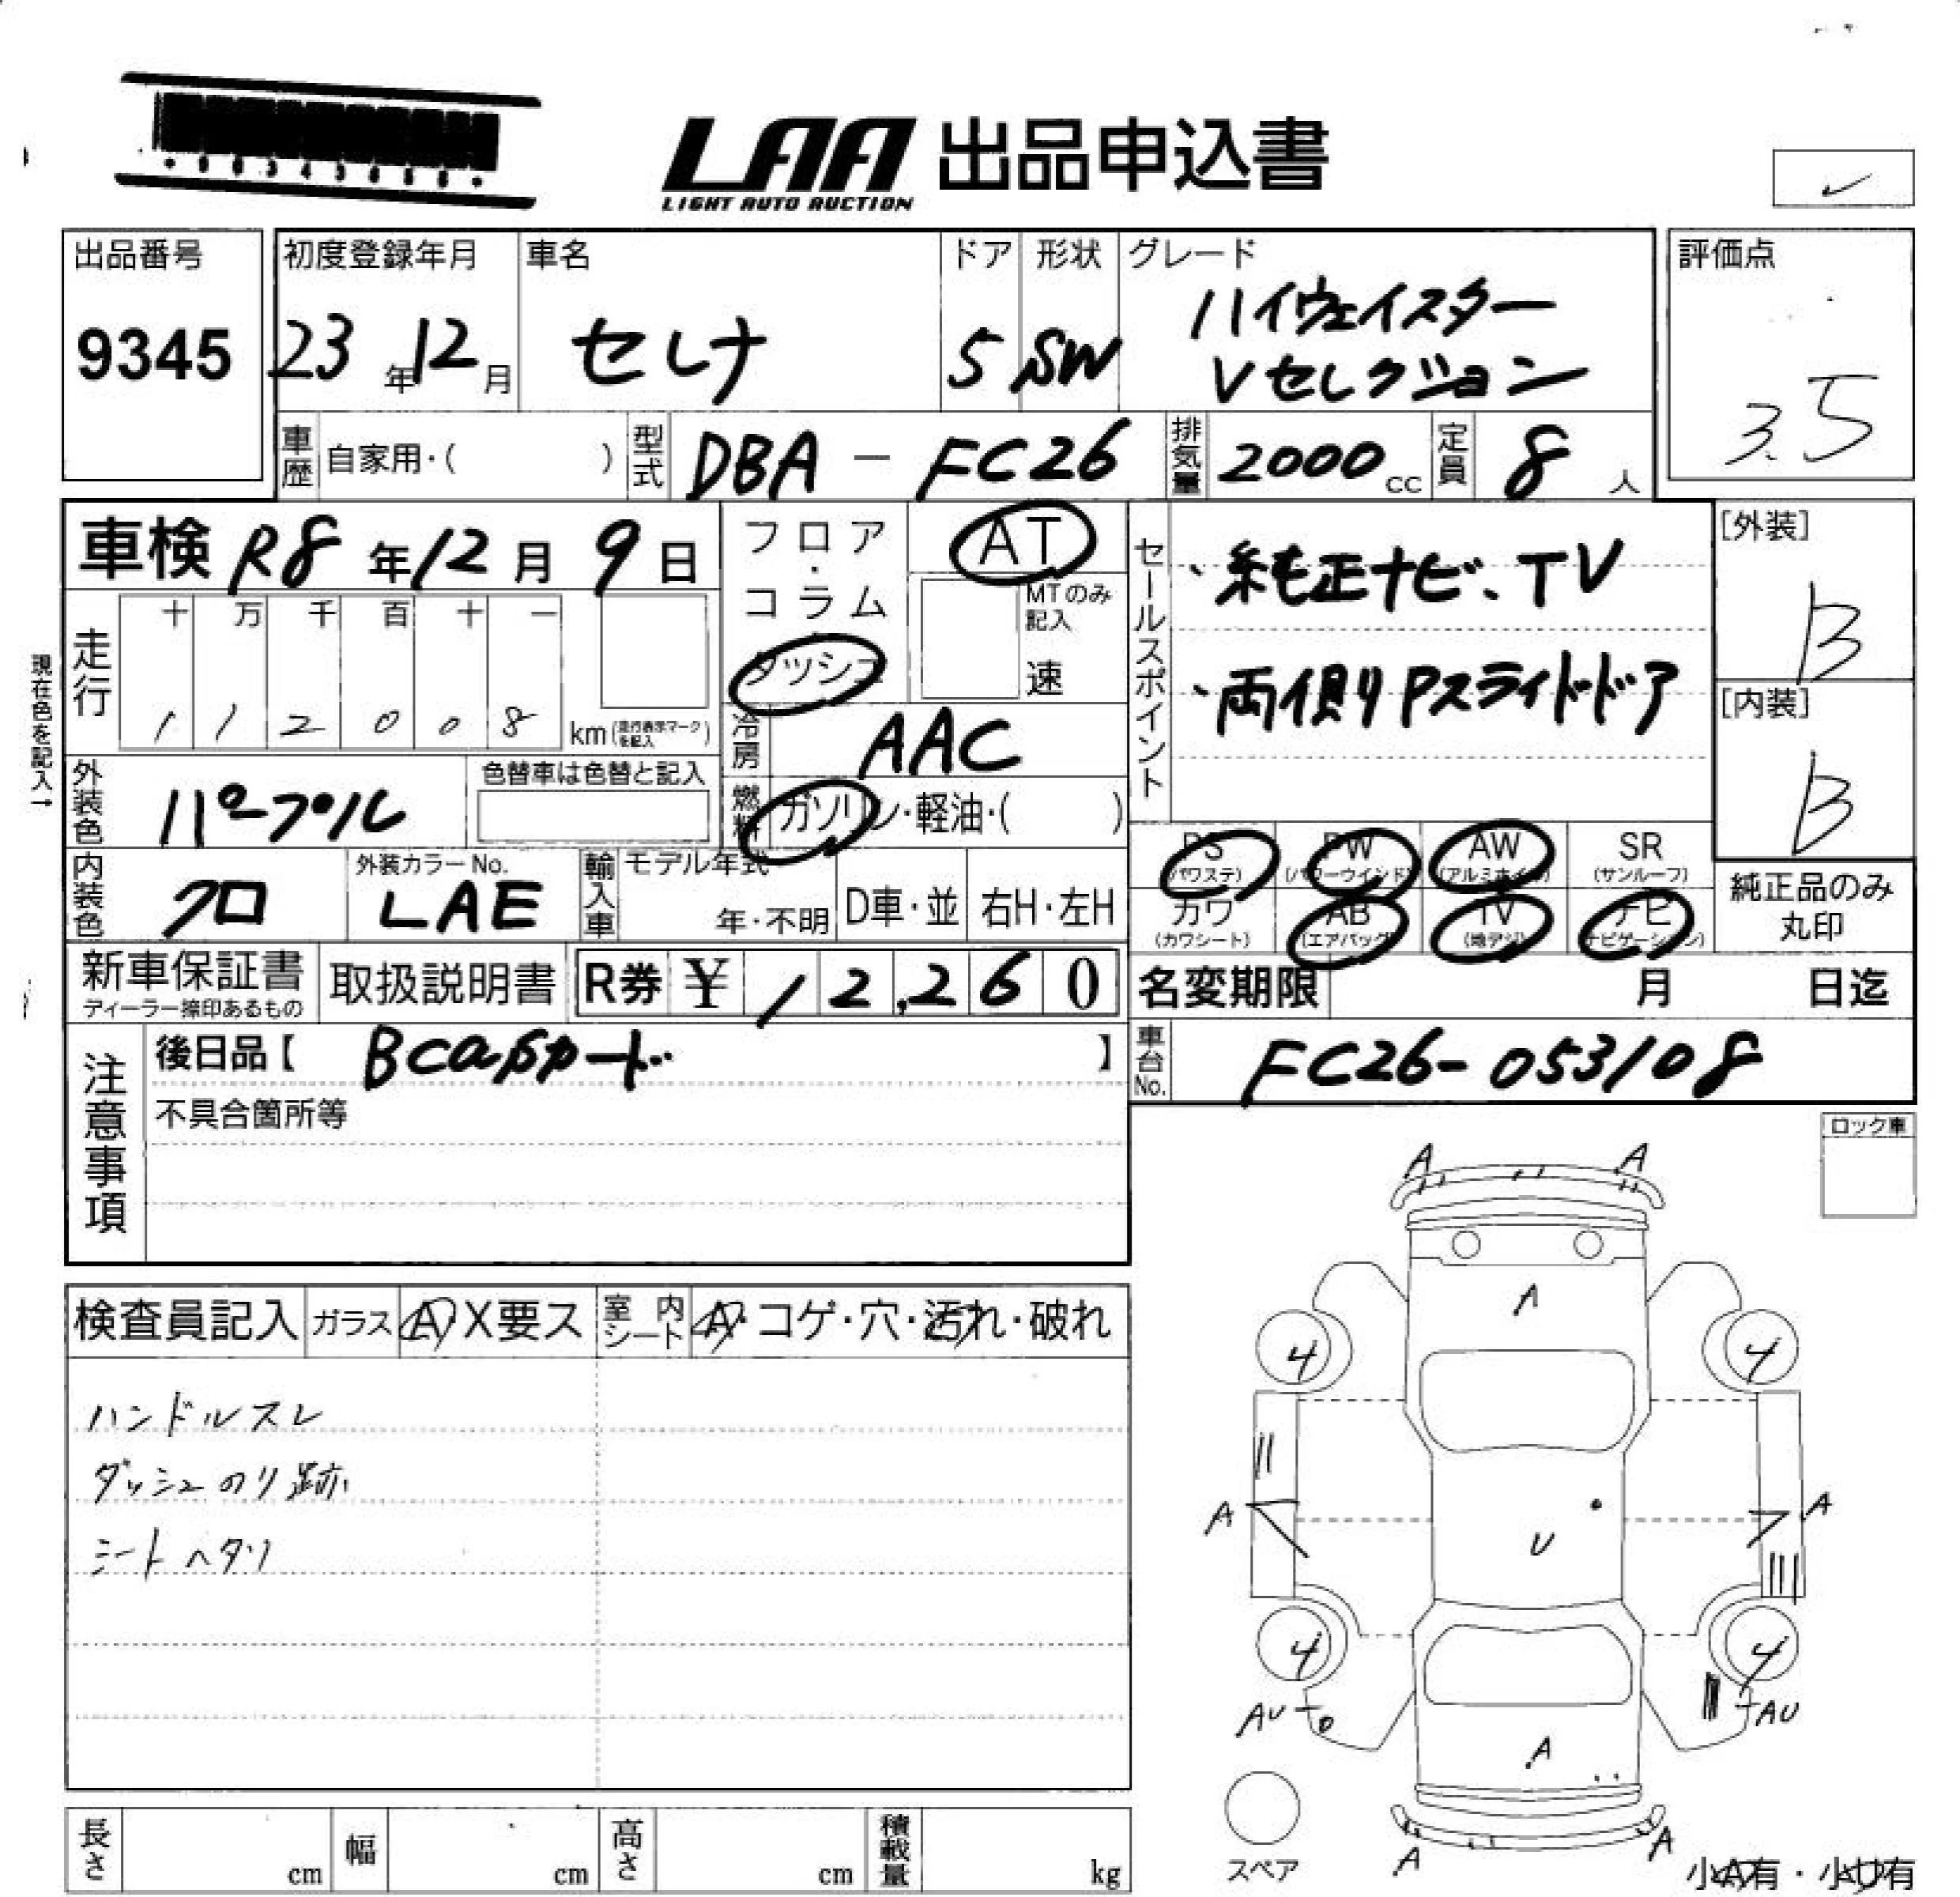 LAA 出品申込書
LIGHT AUTO AUCTION
出品番号
9345
初度登録年月
23年12月
車名
セレナ
ドア
5
形状
SW
グレード
ハイウェイスター
Vセレクション
評価点
3.5
車歴
自家用・( )
型式
DBA - FC26
排気量
2000cc
定員
8人
車検 R8年12月9日
フロア・コラム
ダッシュ
AT
MTのみ記入
速
セールスポイント
、純正ナビ、TV
、両側Pスライドドア
[外装]
B
[内装]
B
現在色を記入→
走行
十 万 千 百 十 一
1 1 2 0 0 8 km
冷房
AAC
外装色
パープル
色替車は色替と記入
燃料
ガソリン・軽油・( )
内装色
クロ
外装カラーNo.
LAE
輸入車
モデル年式
年・不明
D車・並
右H・左H
PS (パワステ)
PW (パワーウインド)
AW (アルミホイル)
SR (サンルーフ)
カワ (カワシート)
AB (エアバッグ)
TV (地デジ)
ナビ (ナビゲーション)
純正品のみ
丸印
新車保証書
ディーラー捺印あるもの
取扱説明書
R券 ¥ 12,260
名変期限 月 日迄
注意事項
後日品【 Bcasカード 】
不具合箇所等
車台No.
FC26-053108
ロック車
検査員記入
ガラス
A X 要ス
室内シート
A・コゲ・穴・汚れ・破れ
ハンドルスレ
ダッシュのり跡
シートヘタリ
A A
A
4 4
A A
U
4 4
AU AU
A
A A
スペア
小A有・小U有
長さ cm
幅 cm
高さ cm
積載量 kg